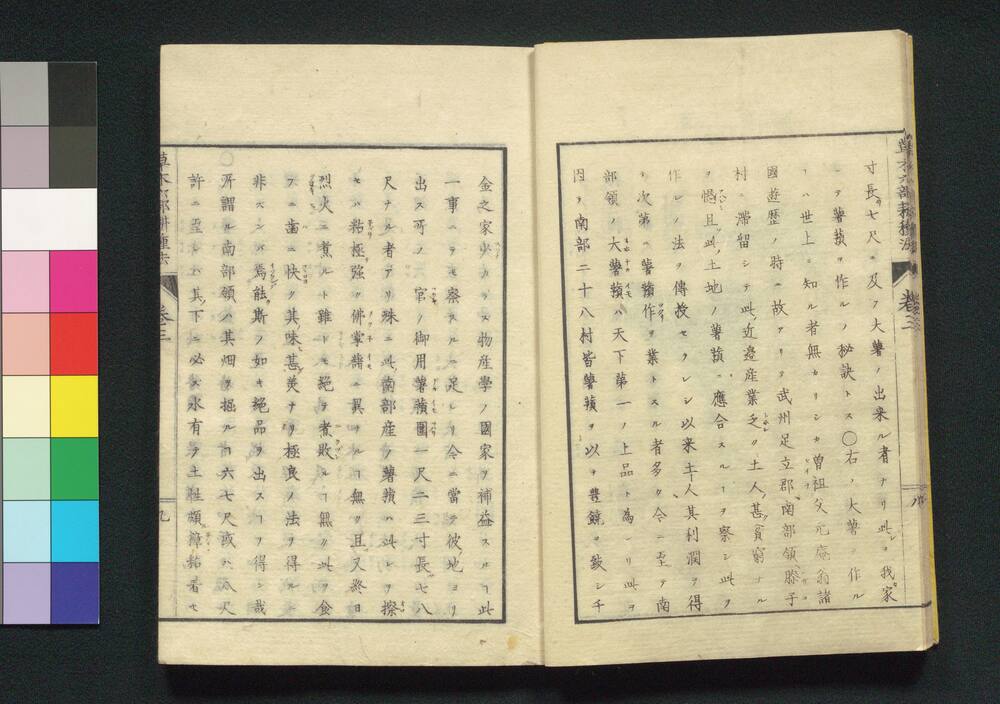 草木六部耕種法
卷三
八
寸長七尺ニ及フ大薯ノ出来ル者ナリ此ヲ我家
ニテ薯蕷ヲ作ルノ秘訣トス〇右ノ大薯ヲ作ル
ハ世上ニ知ル者無カリシカ曽祖父元庵翁諸
國遊歴ノ時ニ故アリテ武州足立郡南部領
村ニ滞留シテ此近邊産業乏ク土人甚貧窮ナル
且此土地ノ薯蕷ニ應合スルヿヲ察シ此ヲ
作レノ法ヲ傳授セラレシ以来土人其利潤ヲ得
次第ニ薯蕷作ヲ業トスル者多ク今ニ至テ南
部領ノ大薯蕷ハ天下第一ノ上品ト為レリ此ヲ
因テ南部二十八村皆薯蕷ヲ以テ豊饒ヲ致シ千
金之家少カラス物産學ノ國家ヲ補益スルヿ此
一事ニテモ察スルニ足レリ今ニ當テ彼地ヨリ
出ス可ノ官ノ御用薯蕷圍一尺二三寸長七八
尺ナル者アリ殊ニ此南部産ノ薯蕷ハ此レヲ擦
セハ粘極強ク佛掌藷ニ異ナルヿ無ク且又終日
烈火ニ煮ルト雖トモ絶テ煮敗ルヿ無ク此ヲ食
フニ歯ニ快ク其味甚美ナリ極良ノ法ヲ得ルニ
非スンバ焉能斯ノ如キ絶品ヲ出スヿヲ得ン哉
所謂ル南部領ハ其畑ヲ掘ルヿ六七尺或ハ八尺
許ニ至レハ其下ニ必ス水有テ土性頗ル粘着セ
草木六部耕種法
卷三
九